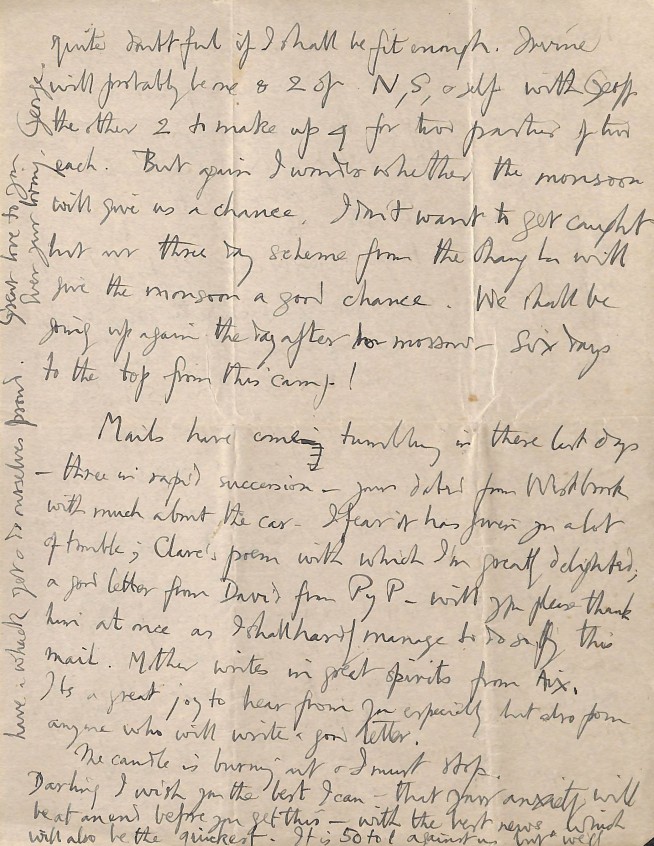 quite doubtful if I shall be fit enough. Irvine
will probably be one & 2 of N, S, & self with Geoff
the other 2 to make up 4 for two parties of two
each. But again I wonder whether the monsoon
will give us a chance. I don't want to get caught
but our three day scheme from the Chang La will
give the monsoon a good chance. We shall be
going up again the day after to morrow – Six days
to the top from this camp!
Mails have come tumbling in these last days
– three in rapid succession – yours dated from Westbrook
with much about the car – I fear it has given you a lot
of trouble; Clare's poem with which I'm greatly delighted;
a good letter from David from PyP – will you please thank
him at once as I shall hardly manage to do so by this
mail. Mother writes in great spirits from Aix.
It's a great joy to hear from you especially but also from
anyone who will write a good letter.
The candle is burning out & I must stop.
Darling I wish you the best I can – that your anxiety will
be at an end before you get this – with the best news. which
will also be the quickest. It is 50 to 1 against us but we'll
have a whack yet & do ourselves proud. Great love to you.
Ever your loving, George.